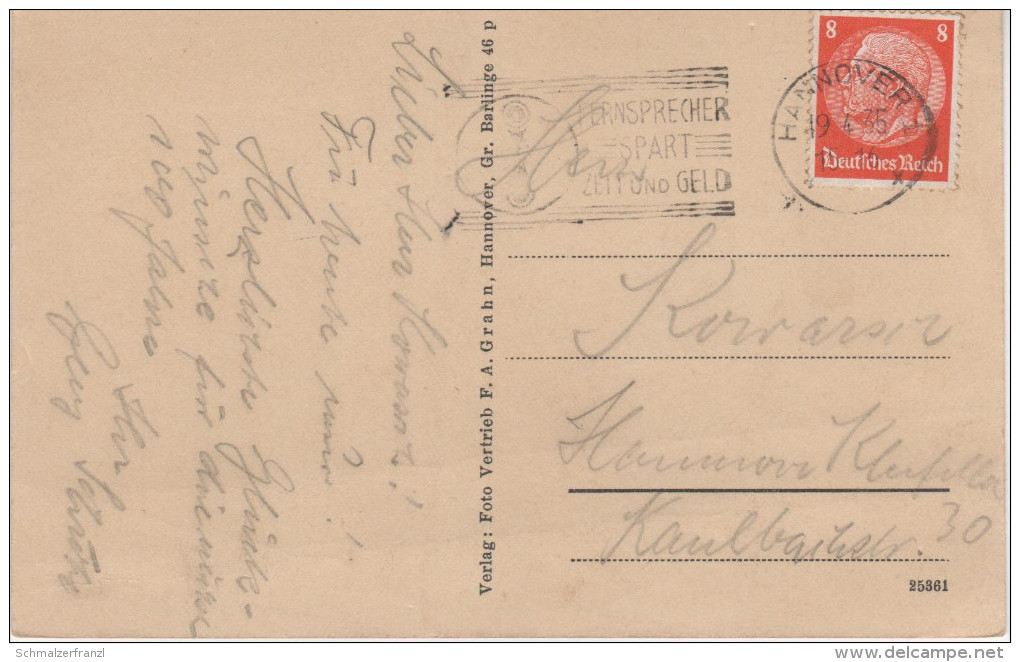 Lieber Herr Kowarsz!
Für heute nur
Herzlichste Glück-
wünsche für die
neo Jahre
Ihr
Verlag: Foto Vertrieb F. A. Grahn, Hannover, Gr. Barlinge 46 p
FERNSPRECHER
SPART
ZEIT UND GELD
HANNOVER
19 4 35
8 8
Deutsches Reich
Herrn
Kowarsz
Hannover Kleefeld
Kaulbachstr. 30
25361
Schmalzerfranzl
delcampe.net